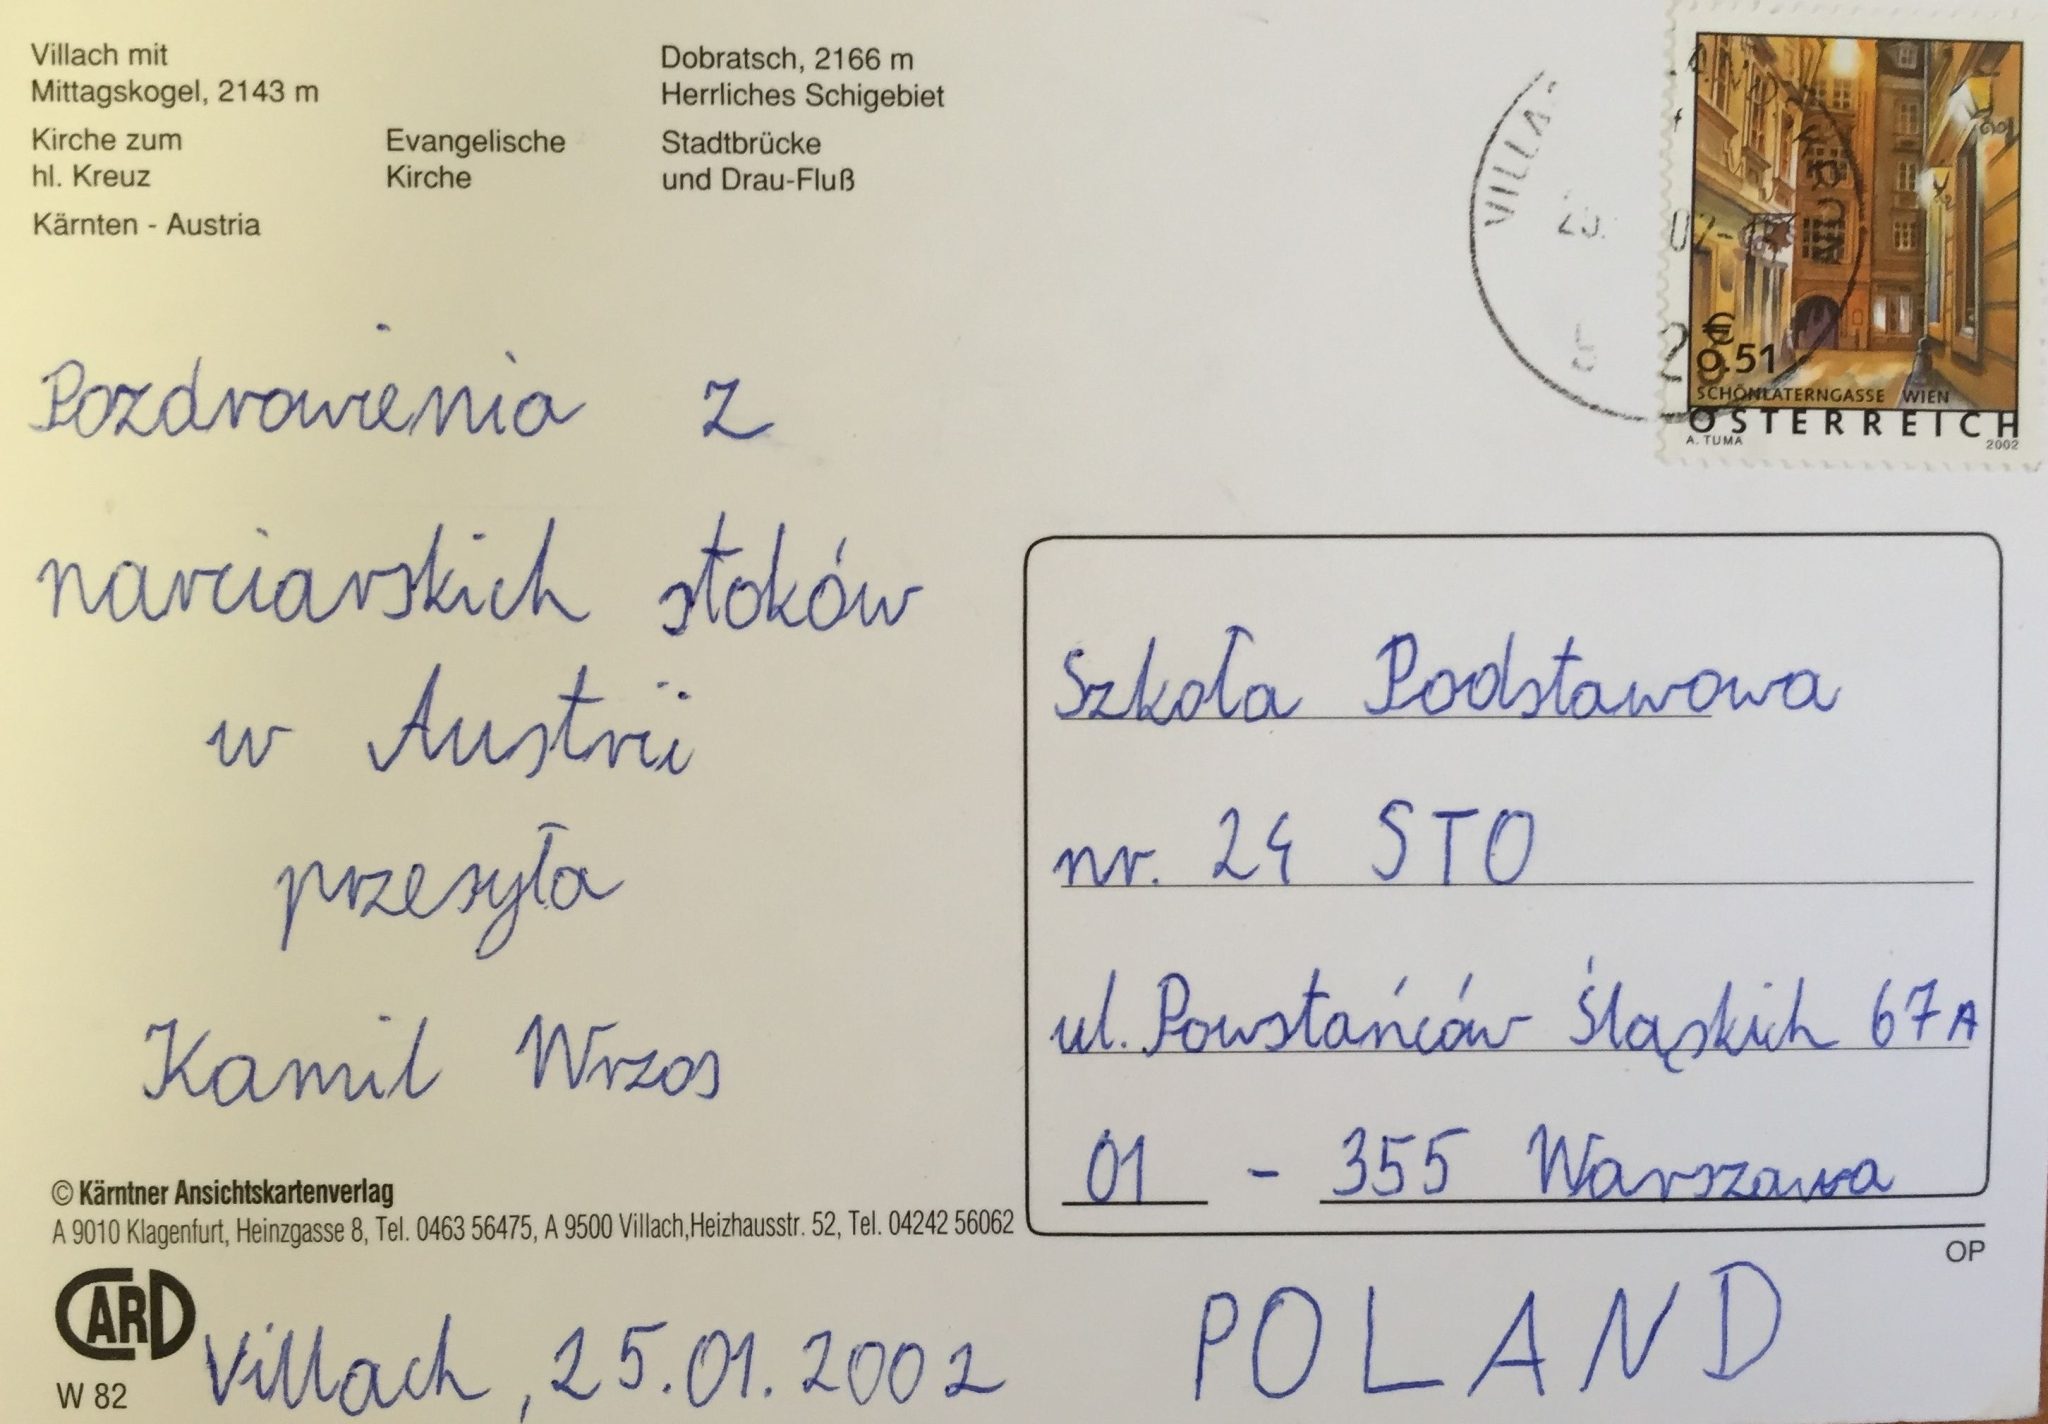 Villach mit
Mittagskogel, 2143 m
Dobratsch, 2166 m
Herrliches Schigebiet
Kirche zum
hl. Kreuz
Evangelische
Kirche
Stadtbrücke
und Drau-Fluß
Kärnten - Austria
€
0.51
SCHÖNLATERNGASSE WIEN
ÖSTERREICH
A. TUMA 2002
Pozdrowienia z
narciarskich stoków
w Austrii
przesyła
Kamil Wrzos
Szkoła Podstawowa
nr. 24 STO
ul. Powstańców Śląskich 67A
01 - 355 Warszawa
OP
POLAND
© Kärntner Ansichtskartenverlag
A 9010 Klagenfurt, Heinzgasse 8, Tel. 0463 56475, A 9500 Villach,Heizhausstr. 52, Tel. 04242 56062
CARD
W 82
Villach, 25.01.2002